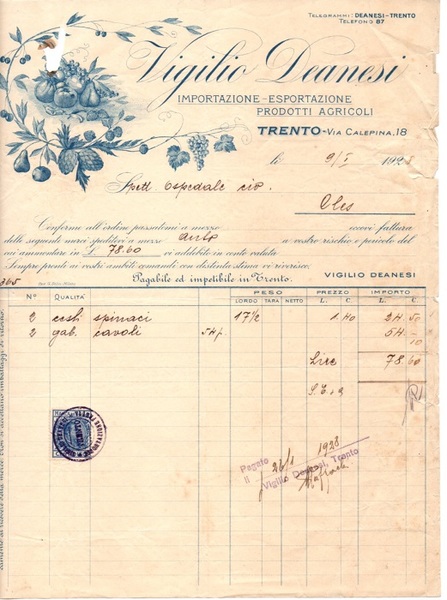 TELEGRAMMI: DEANESI-TRENTO
TELEFONO 87
Vigilio Deanesi
IMPORTAZIONE-ESPORTAZIONE
PRODOTTI AGRICOLI
TRENTO-VIA CALEPINA, 18
li 9/I 192
Spett Ospedale civ.
Cles
Conforme all'ordine passatomi a mezzo eccovi fattura
delle seguenti merci speditevi a mezzo auto a vostro rischio e pericolo del
cui ammontare in £ 78.60 vi addebito in conto valuta
Sempre pronto ai vostri ambiti comandi con distinta stima vi riverisco;
Pagabile ed impetibile in Trento. VIGILIO DEANESI
365
N° QUALITÀ PESO PREZZO IMPORTO
LORDO TARA NETTO L. C. L. C.
2 cest spinaci 17 1/2 1.40 24 50
2 gab. cavoli 54.-
10
Lire 78 60
Pagato
il 26/1 1928
Vigilio Deanesi, Trento